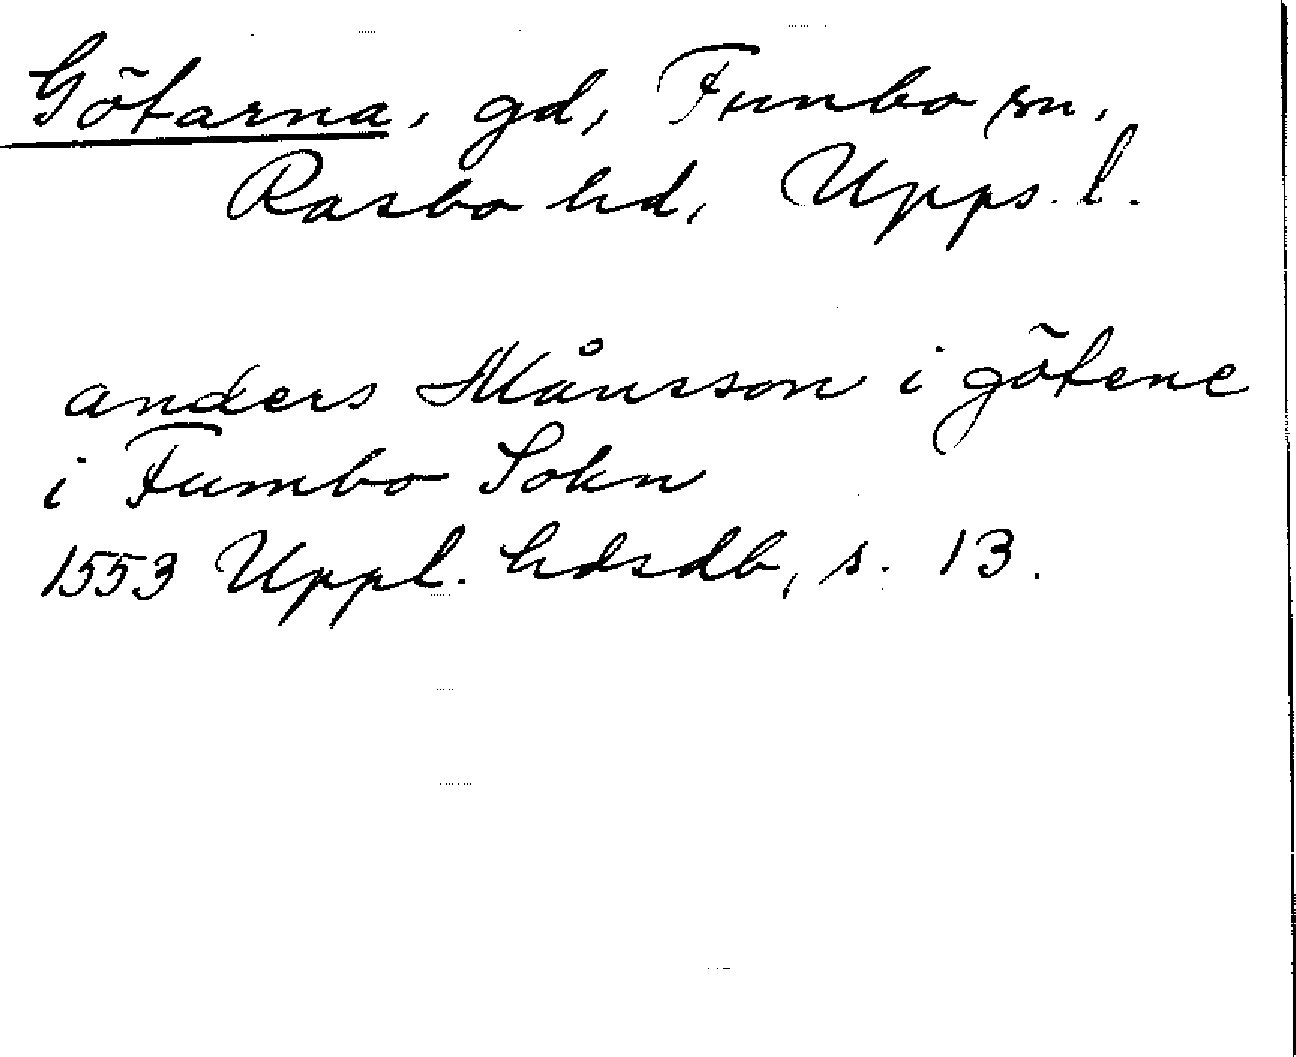 Götarna, gd, Funbo sn,
Rasbo hd, Upps. l.
anders Månsson i götene
i Fumbo Sokn
1553 Uppl. hdsdb, s. 13.